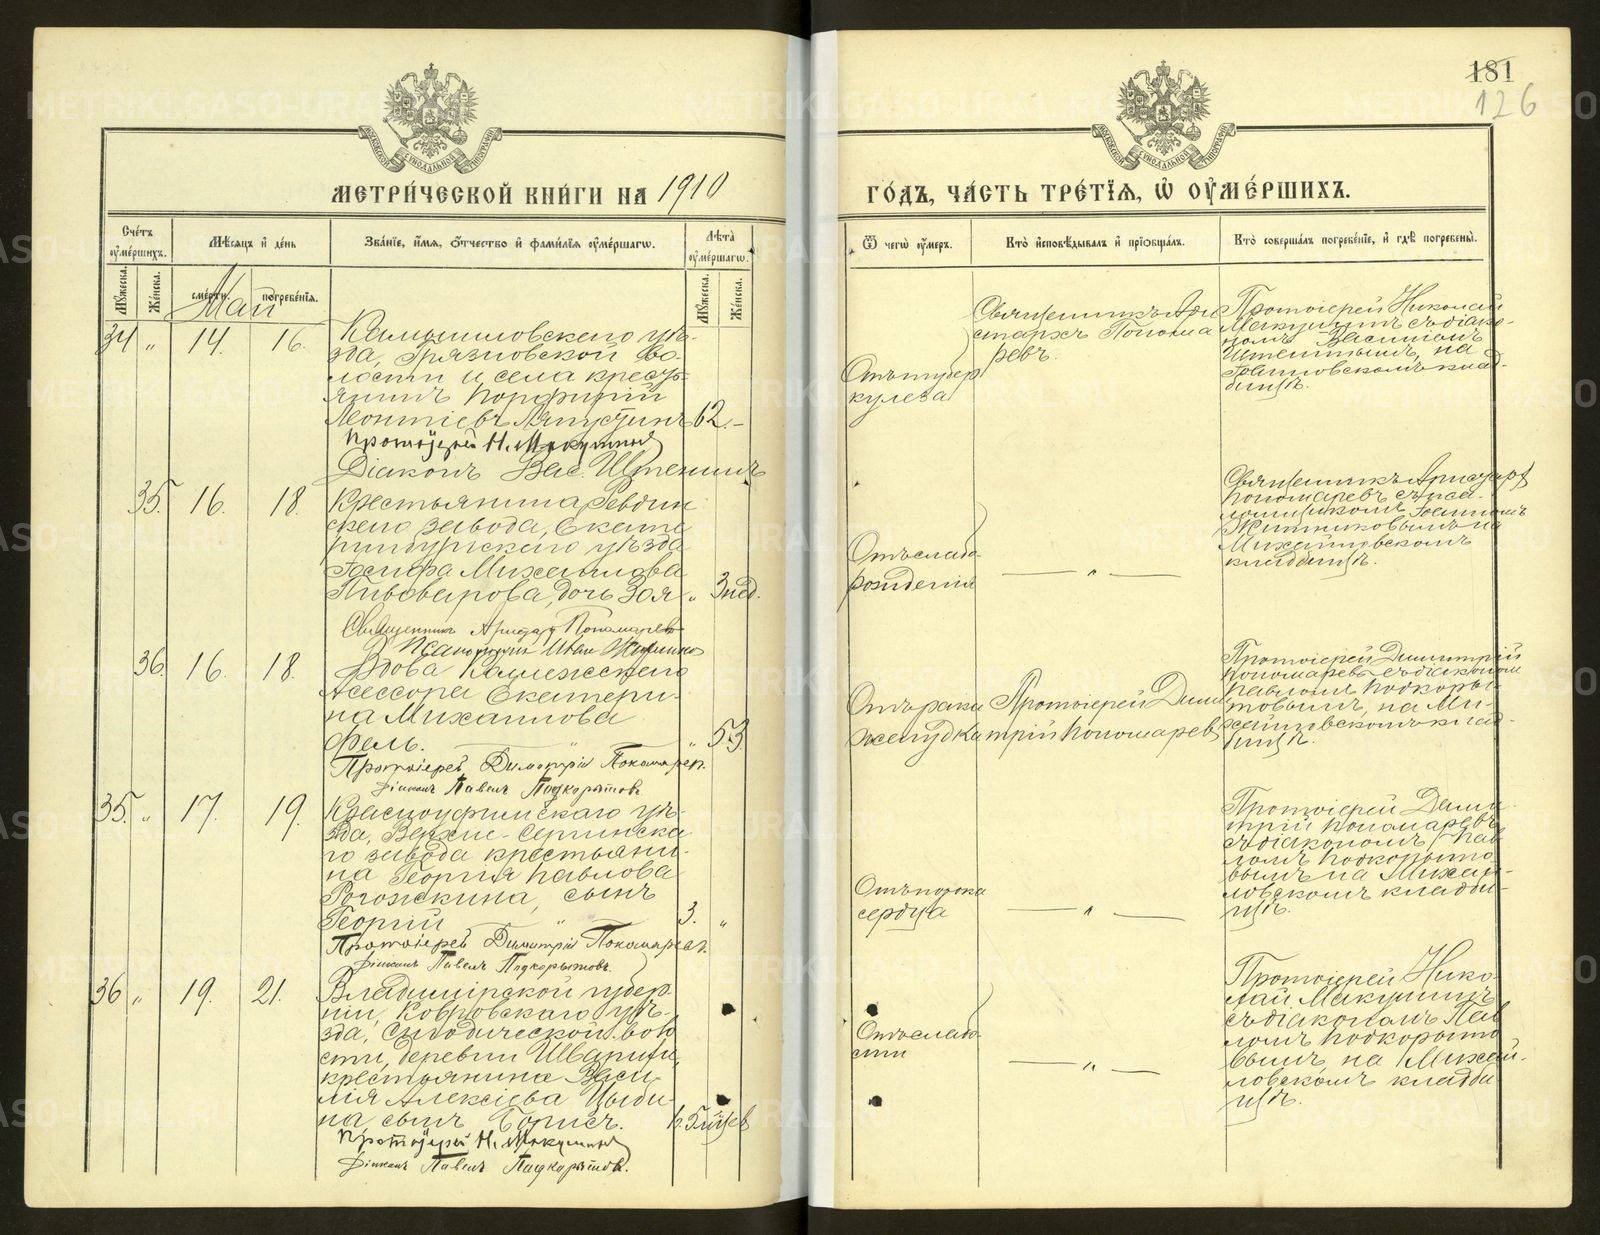 181
126
МЕТРИ́ЧЕСКОЙ КНИ́ГИ НА 1910
ГО́ДЪ, ЧА́СТЬ ТРЕ́ТЇѦ, Ѡ҆ ОУ҆МЕ́РШИХЪ.
Сче́тъ оу҆ме́ршихъ.
Мѣ́сѧцъ и҆ де́нь
Зва́нїе, и҆́мѧ, ѻ҆́тчество и҆ фами́лїѧ оу҆ме́ршагѡ.
Лѣ́та оу҆ме́ршагѡ.
Ѿ чегѡ̀ оу҆́меръ.
Кто̀ и҆сповѣ́дывалъ и҆ прїѡбща́лъ.
Кто̀ соверша́лъ погребе́нїе, и҆ гдѣ̀ погребены̀.
Мꙋ́жеска.
Же́нска.
сме́рти.
погребе́нїѧ.
Мꙋ́жеска.
Же́нска.
Май
34 " 14. 16.
Камышловскаго уѣ-
зда, Грязновской во-
лости и села кресть-
янинъ Порфирій
Леонтіевъ Ляпустинъ 62. -
Протоіерей Н. Мякушинъ
Діаконъ Вас. Иштенинъ
Отъ тубер
кулеза
Священникъ Ари
стархъ Понома
ревъ.
Протоіерей Николай
Мякушинъ съ діако-
номъ Василіемъ
на
клад-
бищѣ.
35. 16. 18.
Крестьянина Ревдин
скаго завода, Екате
ринбургскаго уѣзда
Іосифа Михайлова
Пивоварова, дочь Зоя " 3 нед.
Священникъ Аристархъ Пономаревъ
Псаломщикъ Иван Житников
Отъ слабо-
рожденія
— " —
Священникъ Аристархъ
Пономаревъ съ пса-
ломщикомъ
Житниковымъ на
Михайловскомъ
кладбищѣ.
36. 16. 18.
Вдова Коллежскаго
Асессора Екатери-
на Михайлова
Фель. " " 53.
Протоіерей Димитрій Пономарев.
Діаконъ Павелъ Подкорытовъ
Отъ рака
желудка
Протоіерей Дими
трій Пономаревъ
Протоіерей Димитрій
Пономаревъ съ діакономъ
Павломъ Подкоры-
товымъ, на Ми-
хайловскомъ клад-
бищѣ.
35. " 17. 19.
Красноуфимскаго уѣ-
зда, Верхне-Сергинска
го завода крестьяни-
на Георгія Павлова
Рогожкина, сынъ
Георгій " 3. "
Протоіерей Димитрій Пономарев.
Діаконъ Павелъ Подкорытовъ.
Отъ порока
сердца
— " —
Протоіерей Дими
трій Пономаревъ
съ діакономъ Пав
ломъ Подкорыто
вымъ на Михай-
ловскомъ кладби-
щѣ.
36 " 19. 21.
Владимірской губер-
ніи, Ковровскаго уѣ-
зда, воло
сти, деревни
крестьянина Васи-
лія Алексіева
на, сынъ Борисъ.
Протоіерей Н. Мякушинъ
Діаконъ Павелъ Подкорытовъ.
Отъ слабо-
сти
— " —
Протоіерей Нико-
лай Мякушинъ
съ діакономъ Пав
ломъ Подкорыто
вымъ на Михай-
ловскомъ кладби
щѣ.